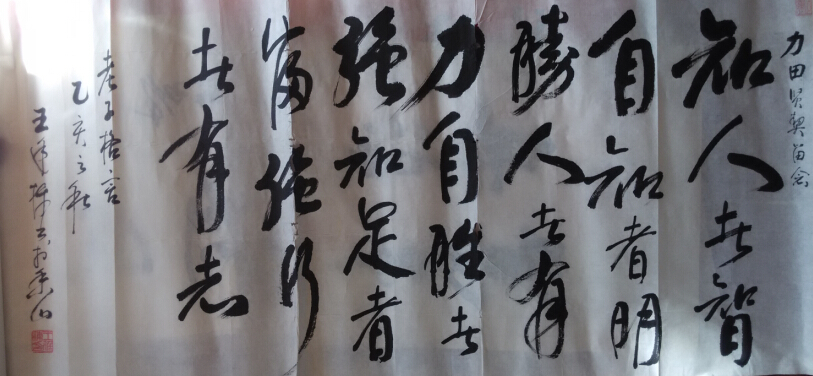 力田贤契留念
知人者智
自知者明
勝人者有
力自胜者
强知足者
富强行
者有志
老子格言
乙亥之秋
王